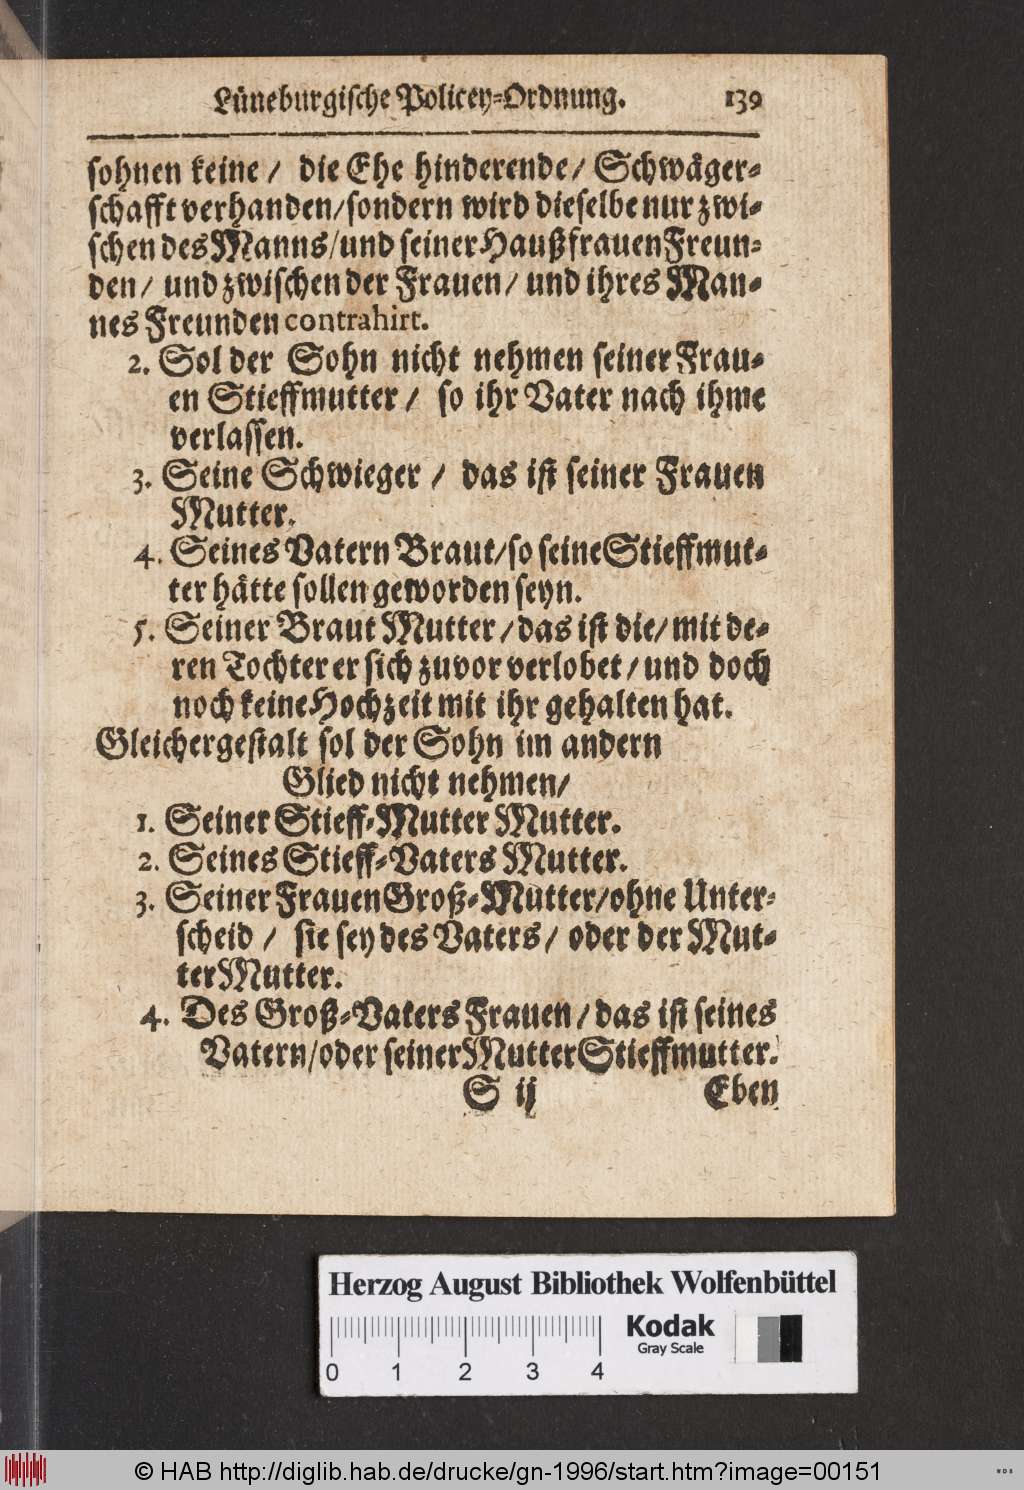 Lüneburgische Policey=Ordnung. 139
sohnen keine / die Ehe hinderende / Schwäger=
schafft verhanden / sondern wird dieselbe nur zwi=
schen des Manns / und seiner Haußfrauen Freun=
den / und zwischen der Frauen / und ihres Man=
nes Freunden contrahirt.
2. Sol der Sohn nicht nehmen seiner Frau=
en Stieffmutter / so ihr Vater nach ihme
verlassen.
3. Seine Schwieger / das ist seiner Frauen
Mutter.
4. Seines Vatern Braut / so seine Stieffmut=
ter hätte sollen geworden seyn.
5. Seiner Braut Mutter / das ist die / mit de=
ren Tochter er sich zuvor verlobet / und doch
noch keine Hochzeit mit ihr gehalten hat.
Gleichergestalt sol der Sohn im andern
Glied nicht nehmen /
1. Seiner Stieff=Mutter Mutter.
2. Seines Stieff=Vaters Mutter.
3. Seiner Frauen Groß=Mutter / ohne Unter=
scheid / sie sey des Vaters / oder der Mut=
ter Mutter.
4. Des Groß=Vaters Frauen / das ist seines
Vatern / oder seiner Mutter Stieffmutter.
S ij Eben
Herzog August Bibliothek Wolfenbüttel
0 1 2 3 4
Kodak
Gray Scale
© HAB http://diglib.hab.de/drucke/gn-1996/start.htm?image=00151